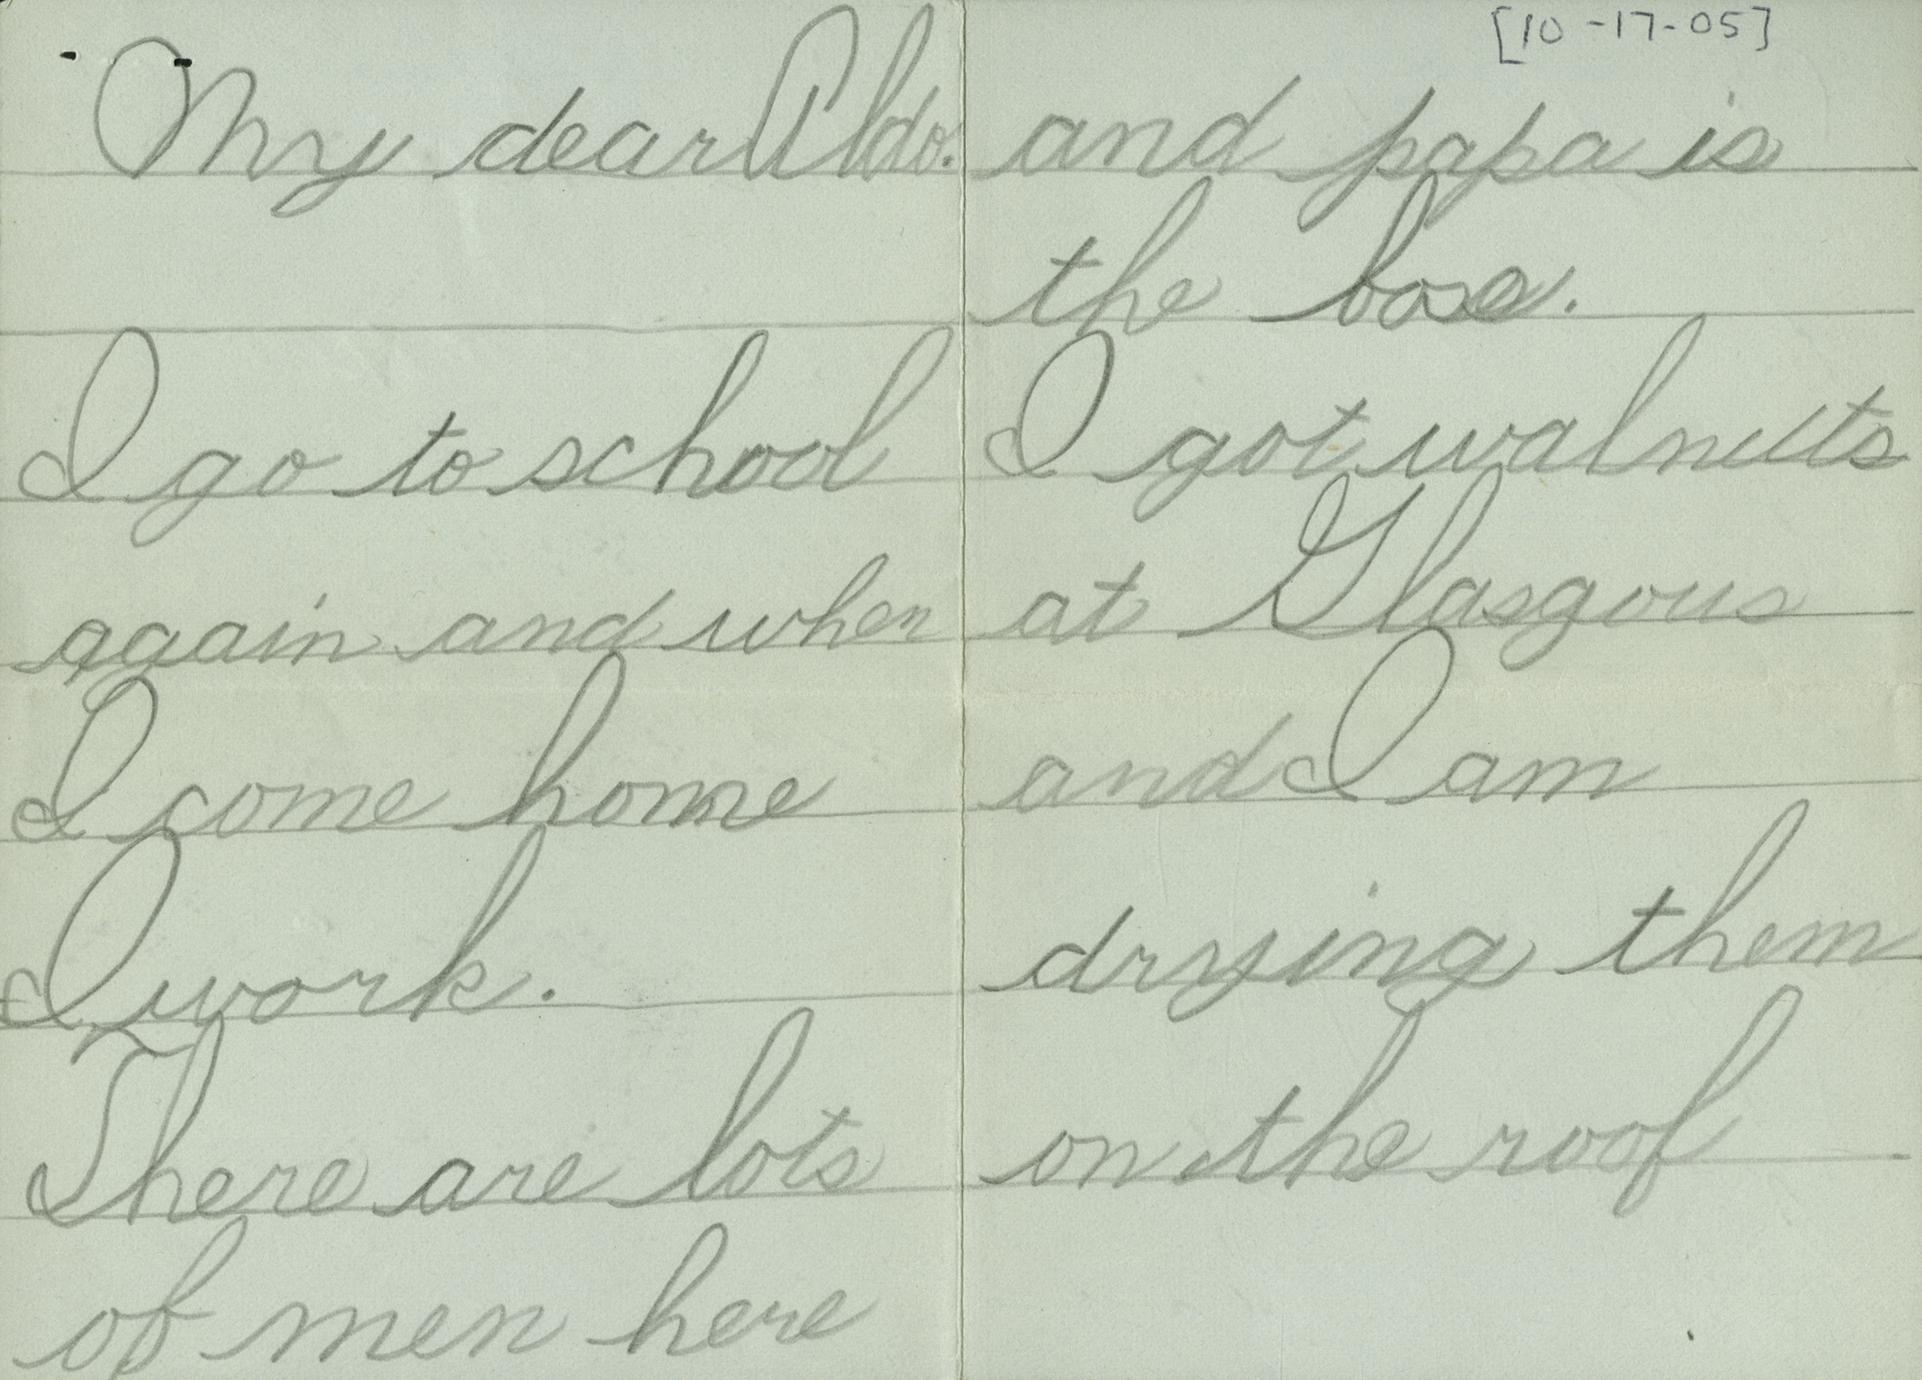 My dear Aldo.
I go to school
again and when
I come home
I work.
There are lots
of men here
[10-17-05]
and papa is
the bose.
I got walnuts
at Glasgous
and I am
drying them
on the roof